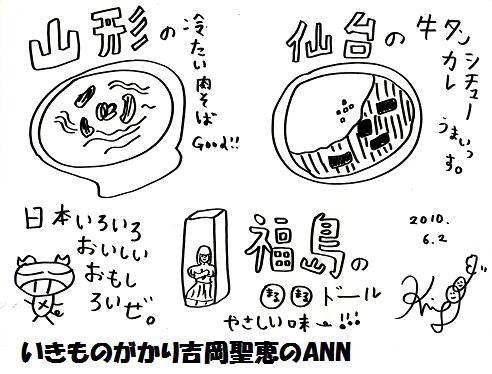 山形の
冷たい肉そば
Good!!
仙台の
牛タンシチュー
カレー
うまいっす。
日本いろいろ
おいしい
おもし
ろいぜ。
福島の
まる まる ドール
やさしい味ー!!!
2010.
6.2
いきものがかり吉岡聖恵のANN